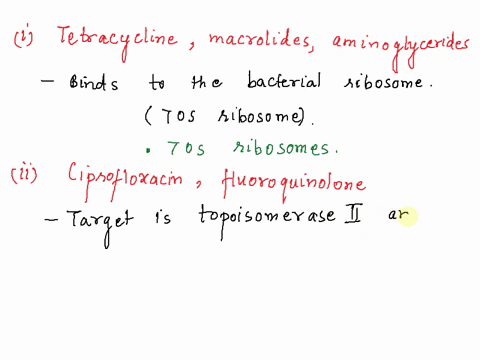 (i) Tetracycline, macrolides, aminoglycerides
- Binds to the bacterial ribosome.
(70s ribosome).
. 70s ribosomes.
(ii) Ciprofloxacin, fluoroquinolone
- Target is topoisomerase II ar